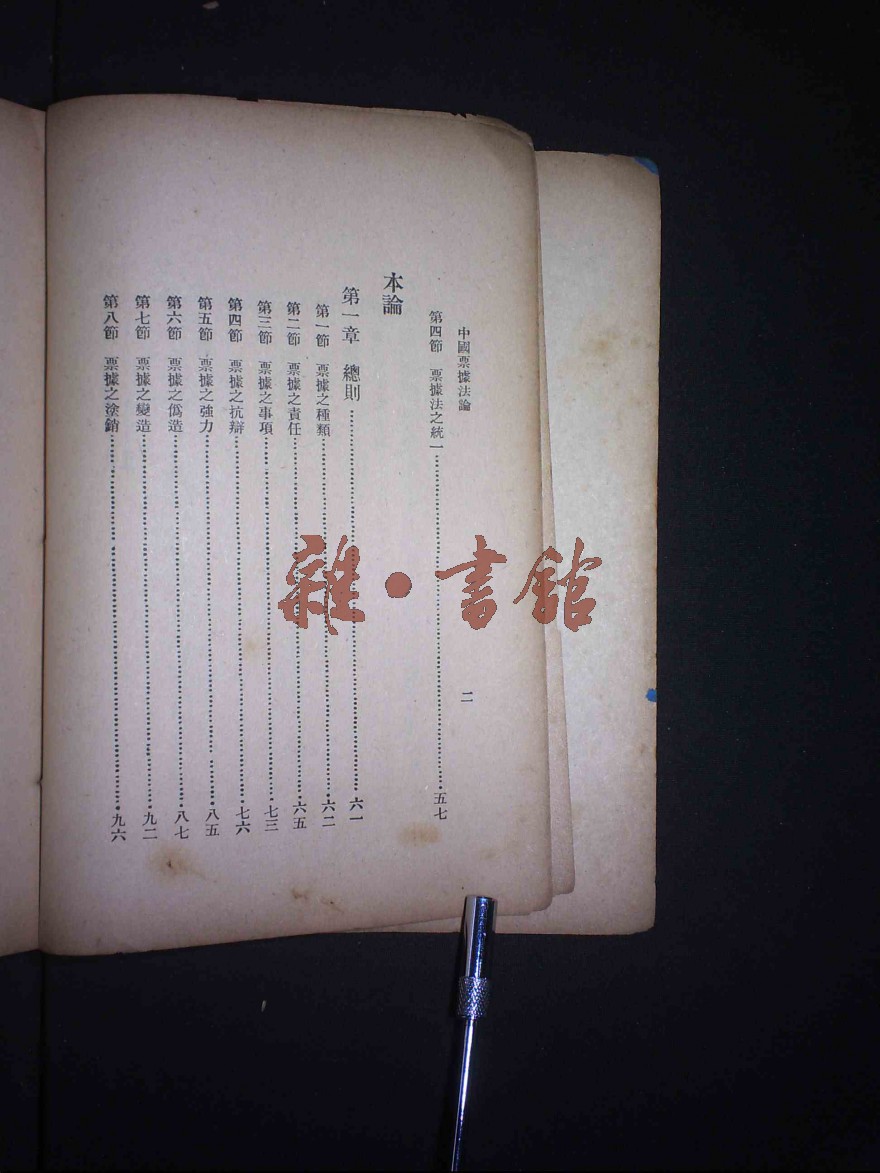 中國票據法論
二
第四節　票據法之統一……五七
本論
第一章　總則……六一
第一節　票據之種類……六二
第二節　票據之責任……六五
第三節　票據之事項……七三
第四節　票據之抗辯……七六
第五節　票據之強力……八五
第六節　票據之僞造……八七
第七節　票據之變造……九二
第八節　票據之塗銷……九六
雜·書館